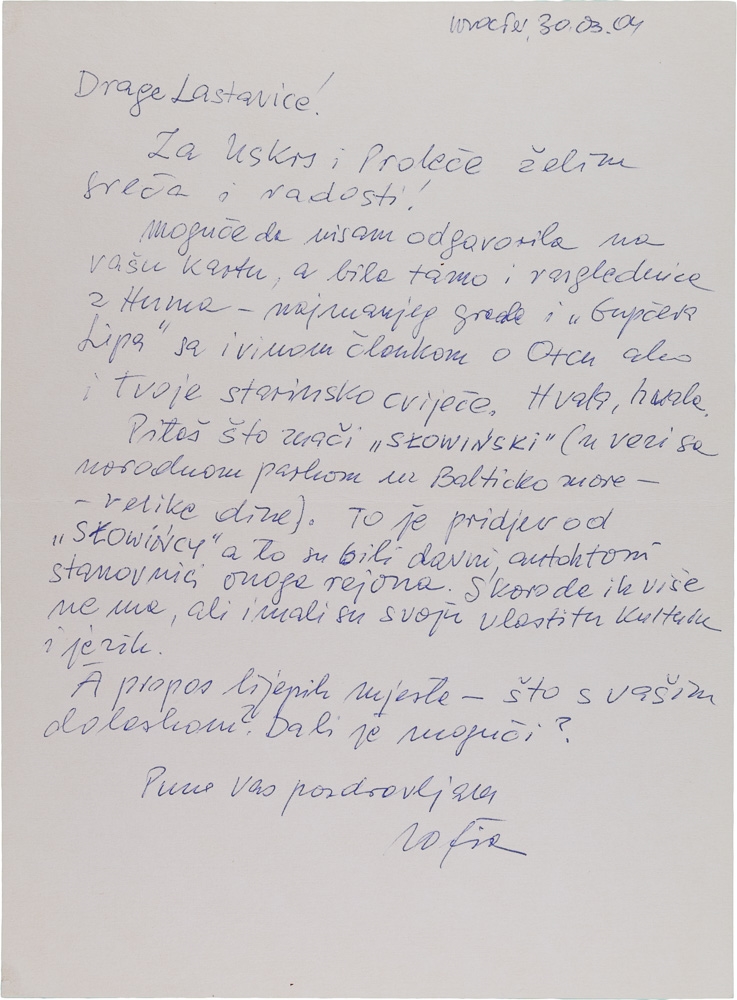 Wrocław, 30.03.04
Drage Lastavice!
Za Uskrs i Proleče želim
sreča i radosti!
Moguče da nisam odgovorila na
vašu kartu, a bila tamo i razglednica
z Huma – najmanjeg grada i „Gupčeva
Lipa" sa ivinom člankom o Otcu ako
i Tvoje starinsko cviječe. Hvala, hvala.
Pitaš što znači „SŁOWIŃSKI" (u vezi sa
narodnom parkom uz Baltičko more –
– velike dine). To je pridjev od
„SŁOWIŃCY" a to su bili davni, autohtoni
stanovnici onoga rejona. Skoro da ih više
ne ma, ali imali su svoju vlastitu kulturu
i jezik.
A propos lijepih mjesta – što s vašim
dolaskom? Da li je moguči?
Puno Vas pozdravljam
Zofia